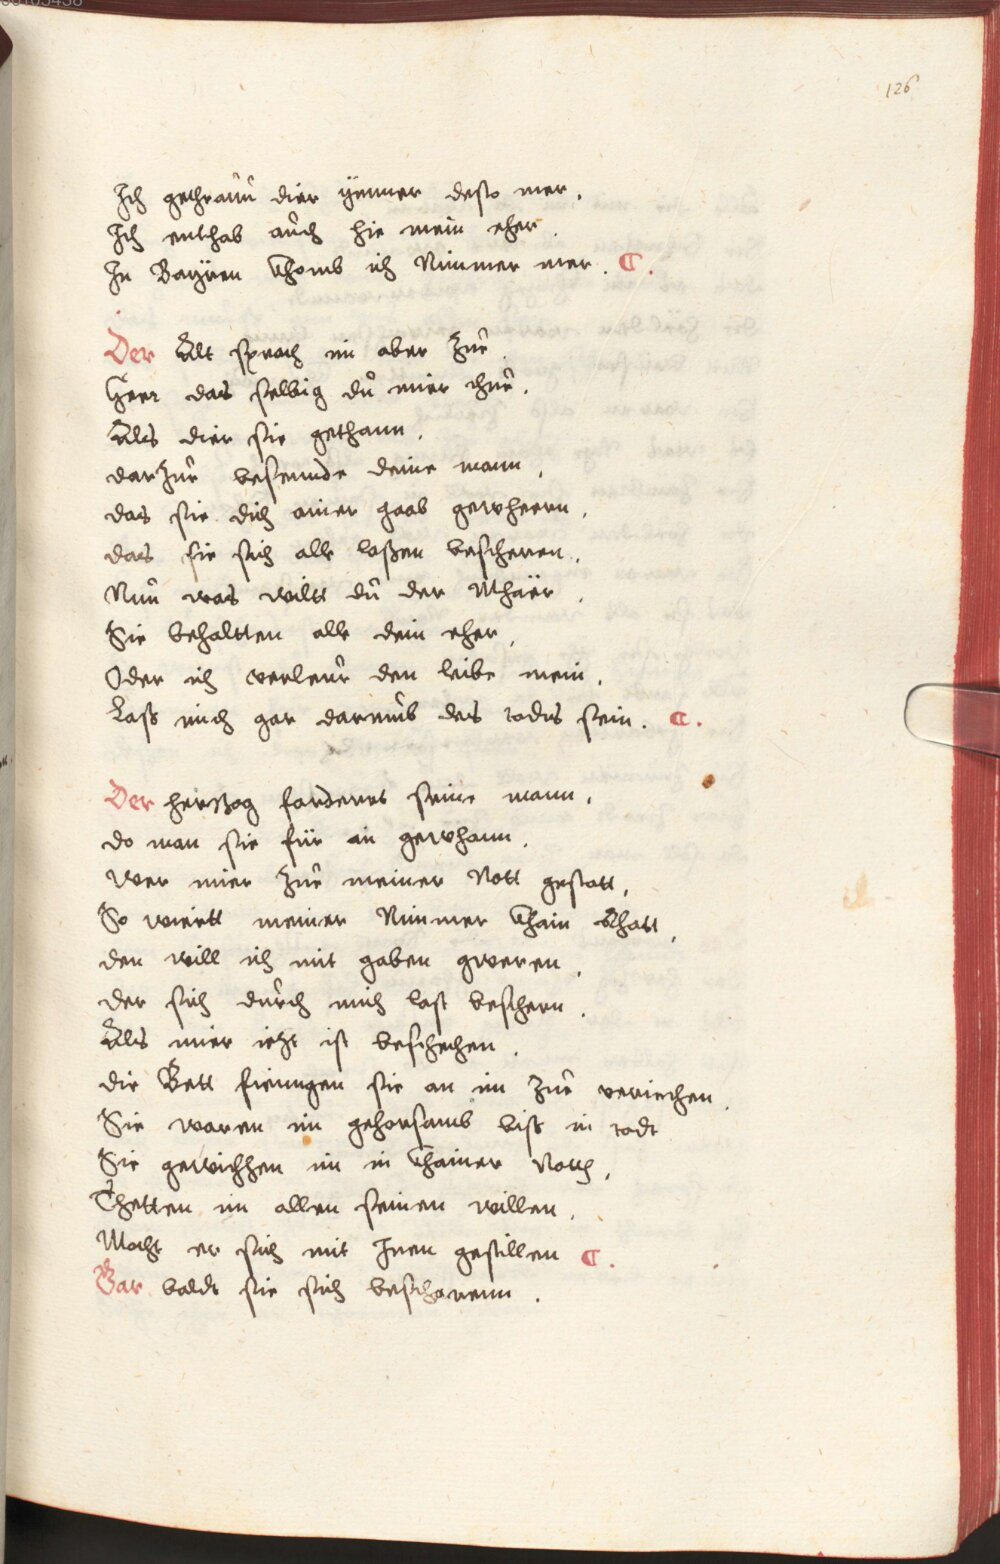 126
Ich gethraüu dier ÿmmer desto mer.
Ich enthab aŭch hie mein eher.
In Baÿren khomb ich Nimmer mer. C.
Der Alt sprach im aber Zŭe.
Herr das selbig dŭ mier thŭe.
Als dier sie gethann.
darZŭe besennde deine mann.
das sie dich ainer gaab gewheern.
das sie sich alle laßen bescheren.
Nŭn was wiltt dŭ der Mhäer.
Sie behaltten alle dein eher.
Oder ich verleŭr den leibe mein.
Laß mich gar darŭmb des todts sein. C.
Der herßog fordertt seine mann.
do man sie für in gewhann.
Wer mier Zŭe meiner Nott gestatt.
So wiertt meiner Nimmer khain Rhatt.
den will ich mit gaben gweren.
der sich dŭrch mich last beschern.
Als mier iezt ist beschehen.
die Bett fienngen sie an im Zŭe veriechen.
Sie waren im gehorsamb bist in todt
Sie gewichhen im in khainer Noth.
Thetten im allen seinen willen.
Mocht er sich mit Inen gestillen C.
Gar baldt sie sich bescharenn.